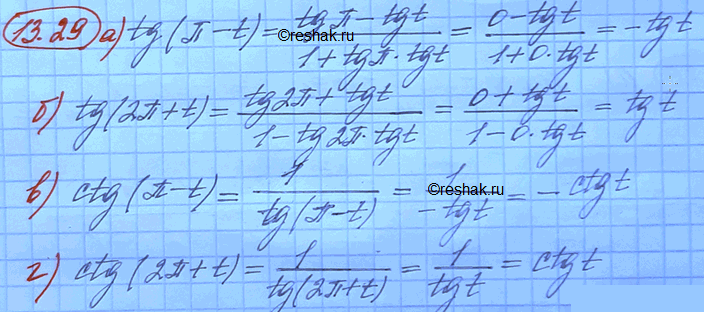 13.29 а) tg(π-t) = (tgπ - tgt)/(1 + tgπ·tgt) = (0 - tgt)/(1+0·tgt) = -tgt
б) tg(2π+t) = (tg2π + tgt)/(1 - tg2π·tgt) = (0 + tgt)/(1 - 0·tgt) = tgt
в) ctg(π-t) = 1/tg(π-t) = 1/-tgt = -ctgt
©reshak.ru
г) ctg(2π+t) = 1/tg(2π+t) = 1/tgt = ctgt